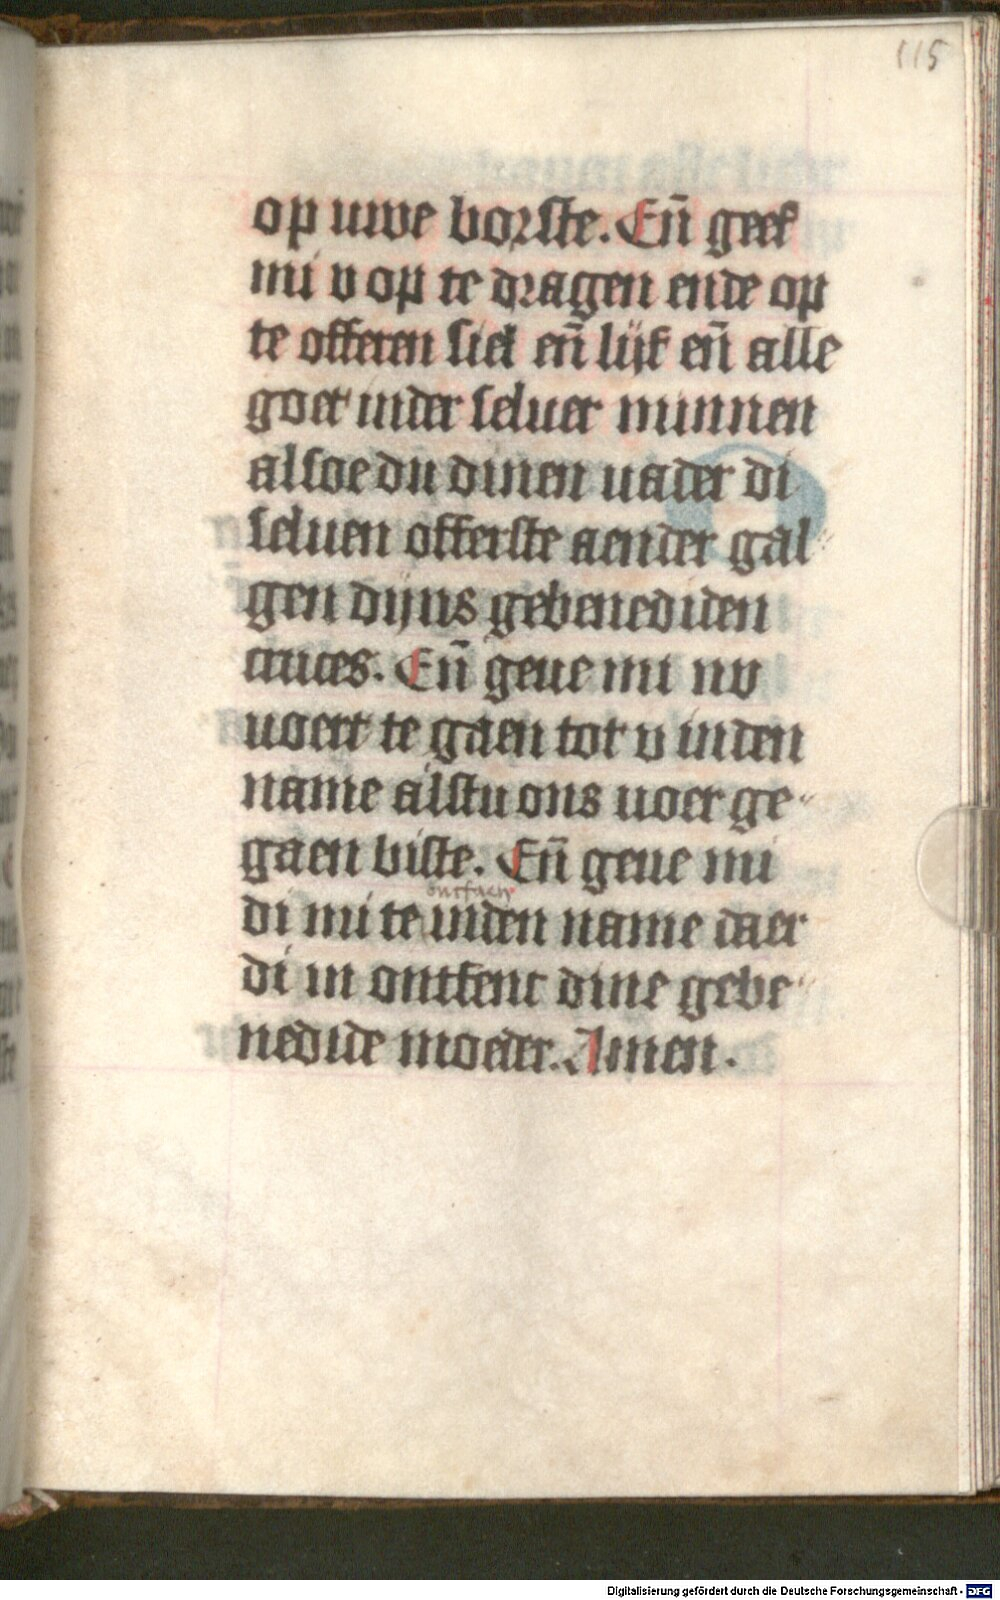 115
op uwe borste. En̄ geef
mi v op te dragen ende op
te offeren siel en̄ lijf en̄ alle
goet inder seluer minnen
alsoe du dinen uader di
seluen offerste aender gal
gen dijns gebenediden
cruces. En̄ geue mi nv
uoert te gaen tot v inden
name alstu ons uoer ge-
gaen biste. En̄ geue mi
ontfaen
di mi te inden name daer
di in ontfenc dine gebe-
nedide moeder. Amen.
Digitalisierung gefördert durch die Deutsche Forschungsgemeinschaft - DFG